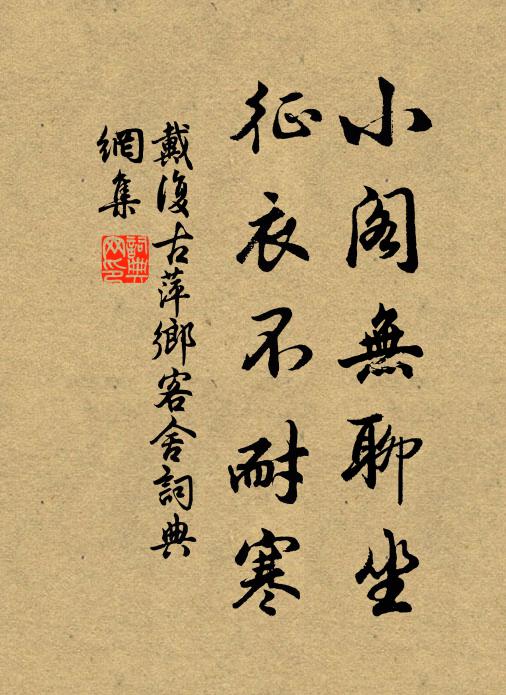 小阁無聊坐
征衣不耐寒
戴復古萍鄉客舍詞典
網集
詞典网印